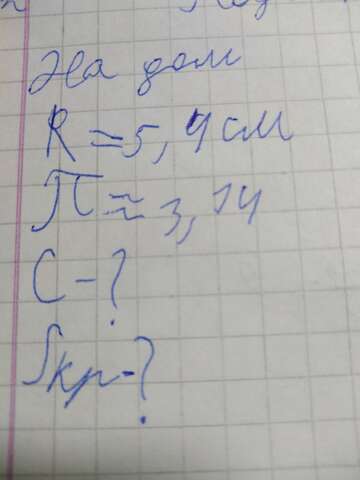 На дом
R = 5,4 см
π ≈ 3,14
C - ?
Sкр - ?